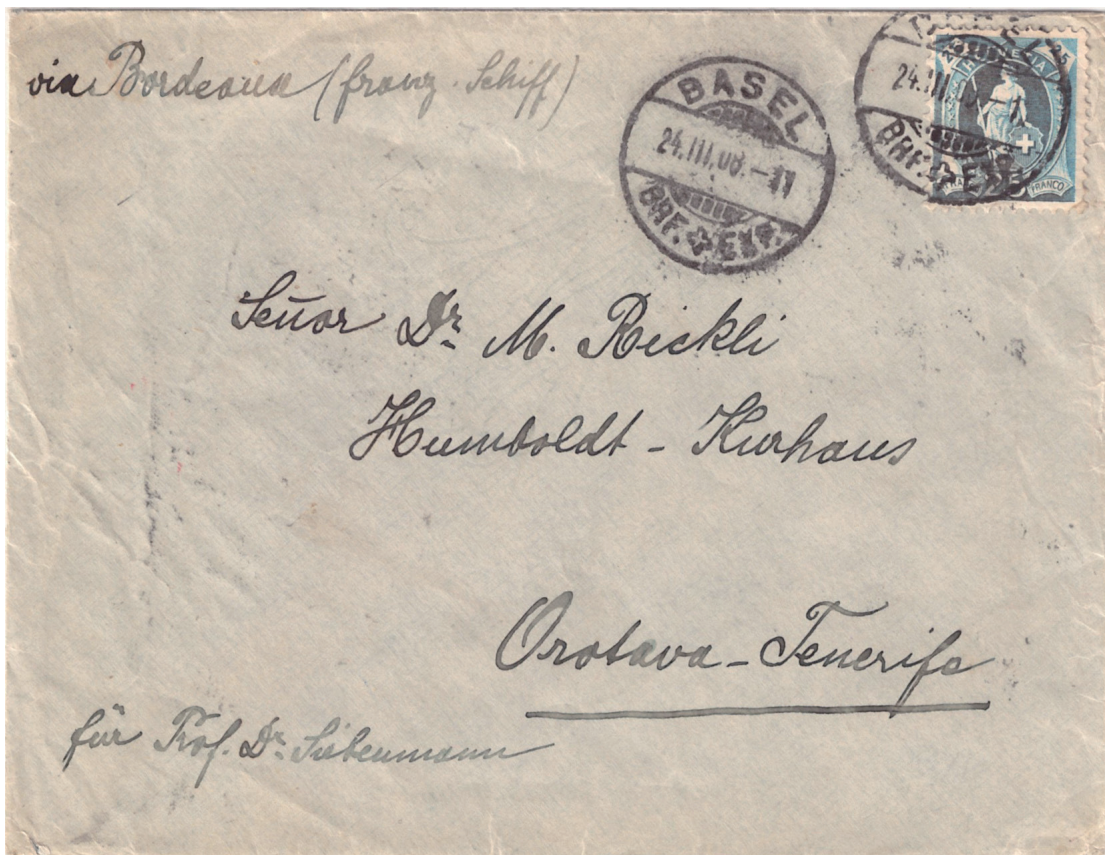 via Bordeaux (franz. Schiff)
BASEL
24.III.08.-11
BRF. EXP.
25
HELVETIA
24.III.
BRF. EX
FRANCO
Señor Dr. M. Rickli
Humboldt-Kurhaus
Orotava-Tenerife
für Prof. Dr. Siebenmann